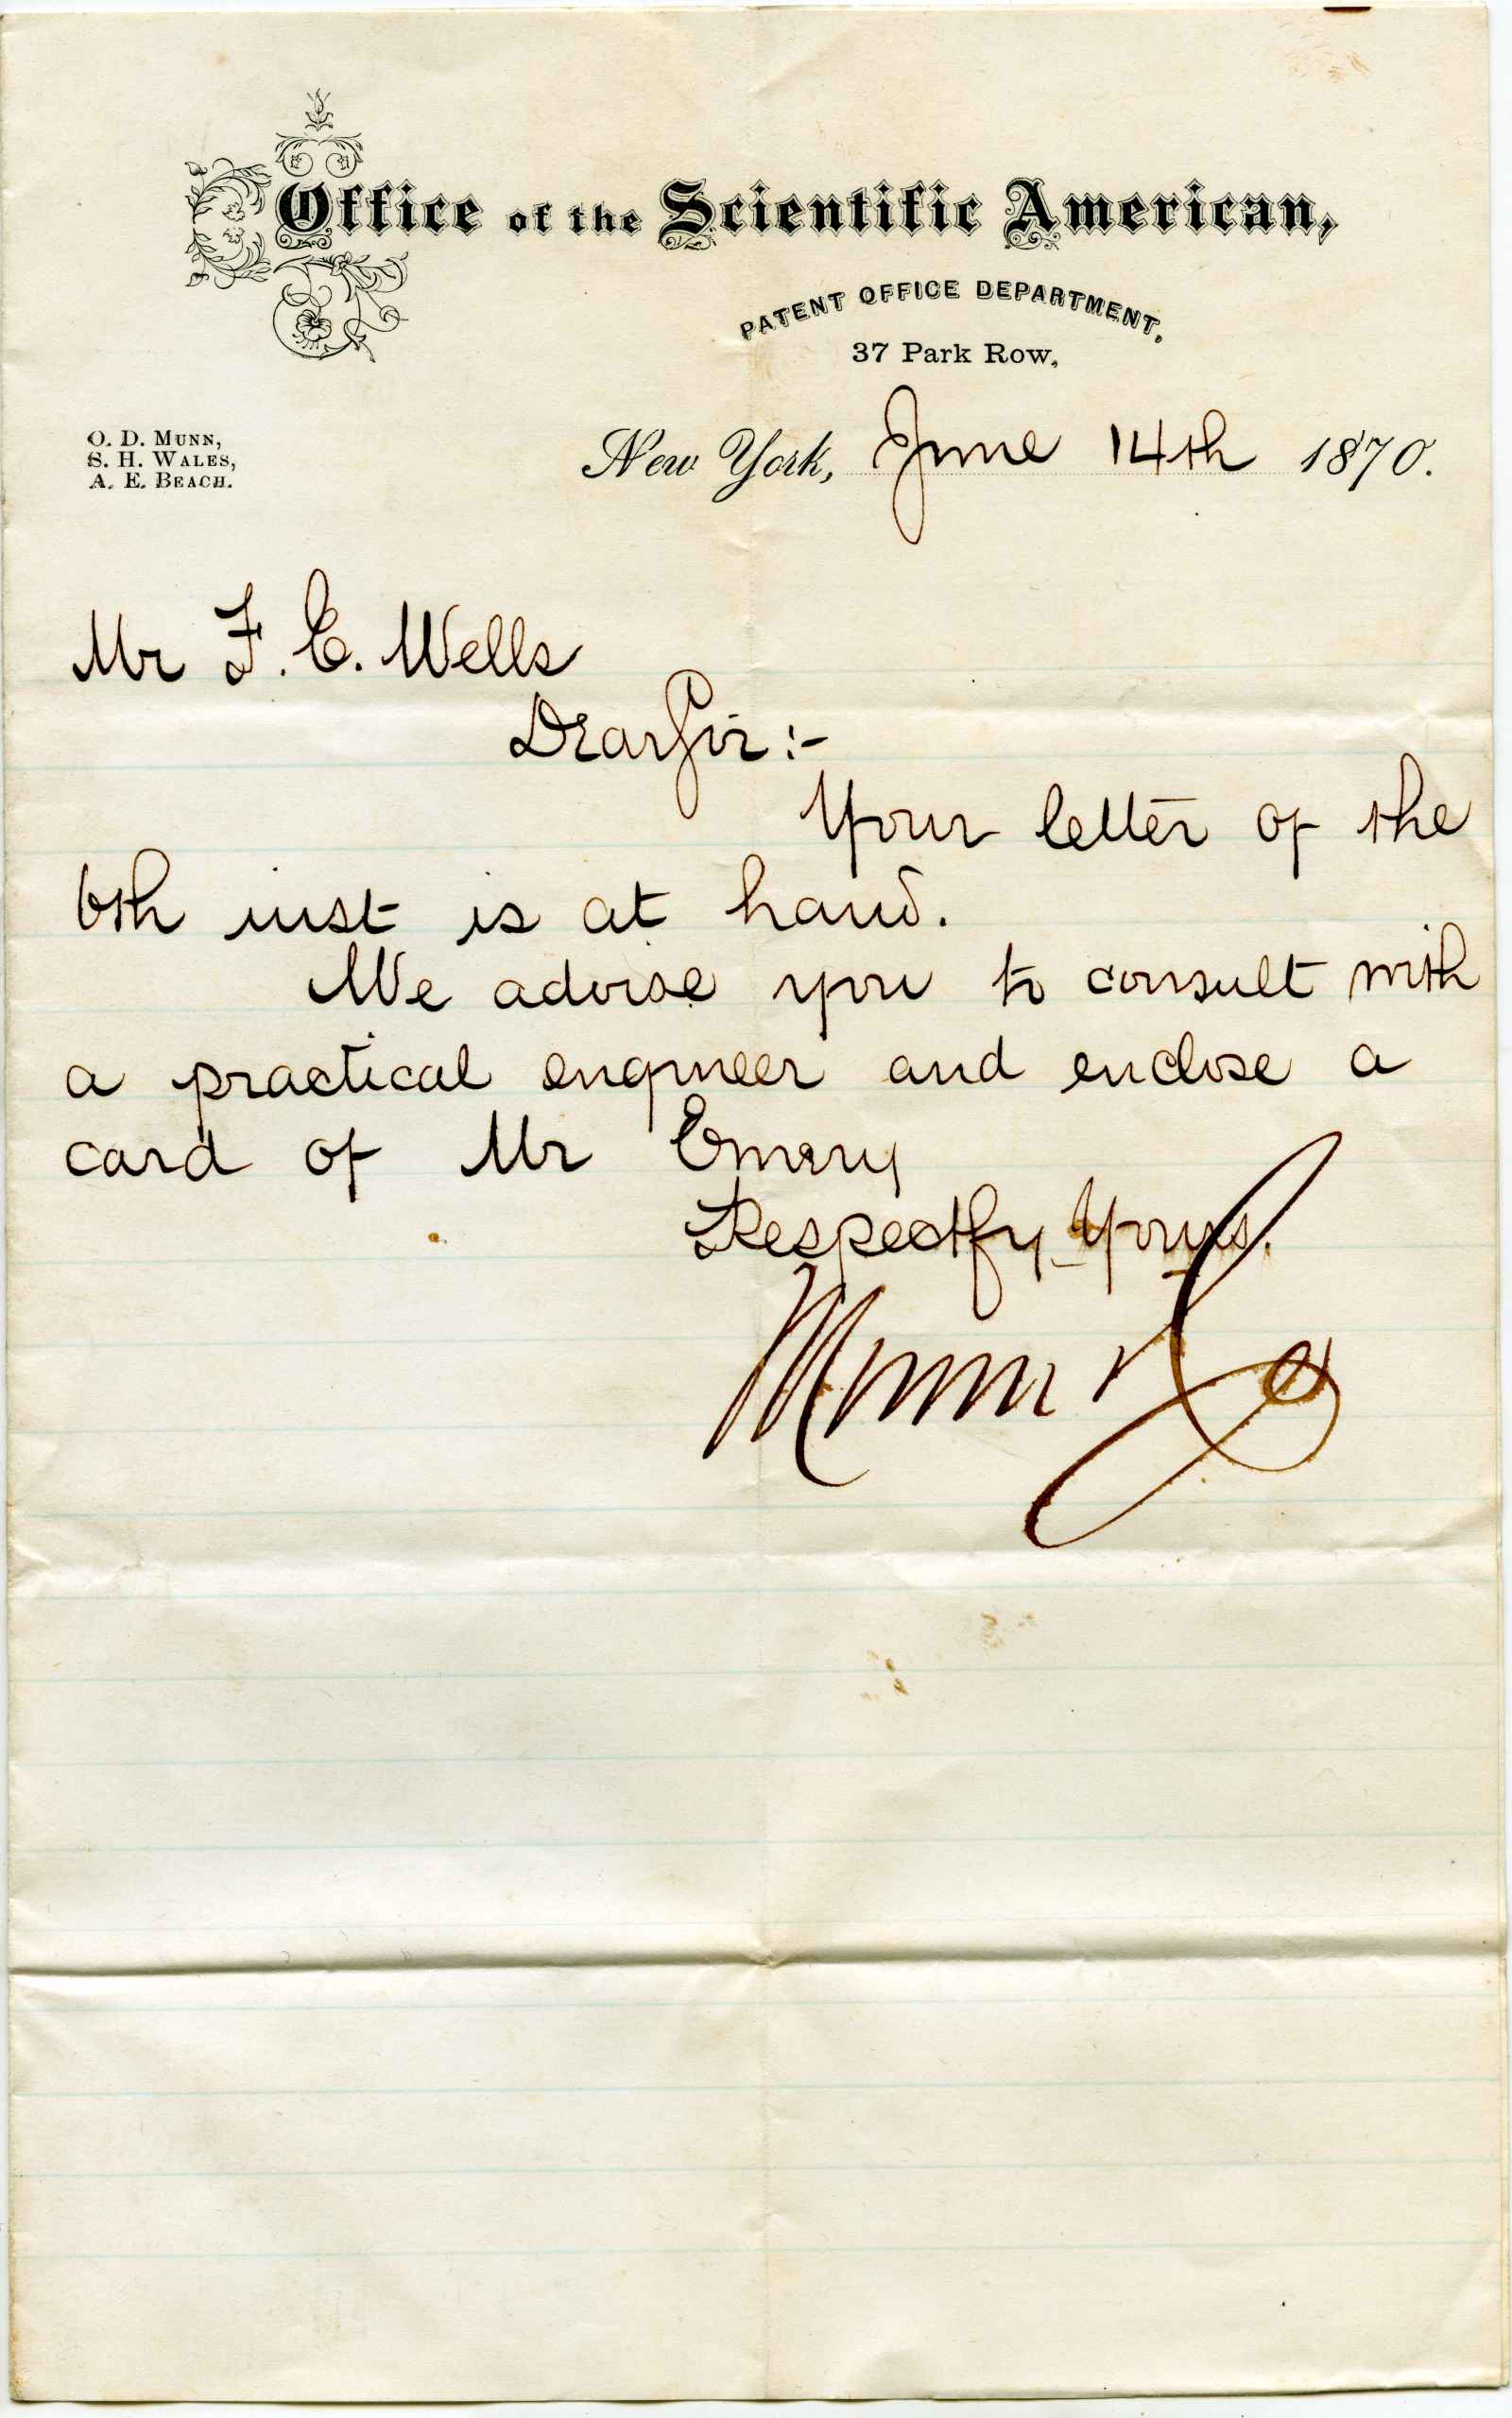 Office of the Scientific American,
PATENT OFFICE DEPARTMENT.
37 Park Row,
O. D. MUNN,
S. H. WALES,
A. E. BEACH.
New York, June 14th 1870.
Mr F. C. Wells
Dear Sir :-
Your letter of the
6th inst is at hand.
We advise you to consult with
a practical engineer and enclose a
card of Mr Emery
Respectfy Yours.
Munn & Co